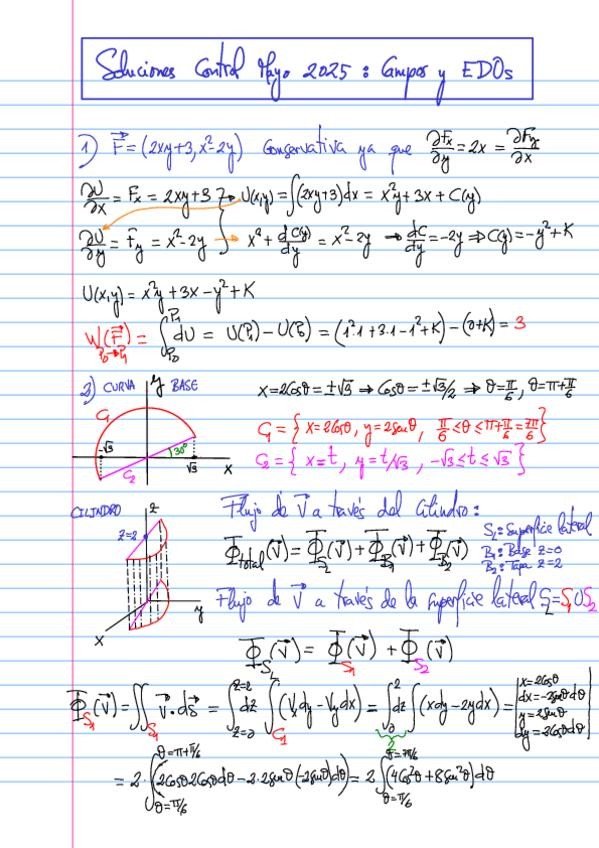 Soluciones Control Mayo 2025: Campos y EDOs
1) F⃗ = (2xy+3, x²-2y) Conservativa ya que ∂Fx/∂y = 2x = ∂Fy/∂x
∂U/∂x = Fx = 2xy+3 → U(x,y) = ∫(2xy+3)dx = x²y+3x+C(y)
∂U/∂y = Fy = x²-2y → x²+dC(y)/dy = x²-2y → dC/dy = -2y ⇒ C(y) = -y²+K
U(x,y) = x²y+3x-y²+K
W(F⃗) P₀→P₁ = ∫_{P₀}^{P₁} dU = U(P₁)-U(P₀) = (1²·1+3·1-1²+K)-(0+K) = 3
2) CURVA BASE
y
x = 2Cosθ = ±√3 ⇒ Cosθ = ±√3/2 ⇒ θ = π/6, θ = π+π/6
C₁
C₁ = { x=2Cosθ, y=2senθ, π/6 ≤ θ ≤ π+π/6 = 7π/6 }
-√3 30° √3 x
C₂
C₂ = { x=t, y=t/√3, -√3 ≤ t ≤ √3 }
CILINDRO z
z=2
y
x
Flujo de V⃗ a través del Cilindro:
Φ_total(V⃗) = Φ_{S_L}(V⃗) + Φ_{B₁}(V⃗) + Φ_{B₂}(V⃗)
S_L: Superficie lateral
B₁: Base z=0
B₂: Tapa z=2
Flujo de V⃗ a través de la superficie lateral S_L = S₁∪S₂
Φ_{S_L}(V⃗) = Φ_{S₁}(V⃗) + Φ_{S₂}(V⃗)
Φ_{S₁}(V⃗) = ∬_{S₁} V⃗·dS⃗ = ∫_{z=0}^{z=2} dz ∫_{C₁} (Vx dy - Vy dx) = ∫_0^2 dz ∫ (xdy - 2ydx) = | x=2Cosθ
dx=-2senθdθ
y=2senθ
dy=2Cosθdθ |
2
= 2·∫_{θ=π/6}^{θ=π+π/6} (2Cosθ2Cosθdθ - 2·2senθ(-2senθ)dθ) = 2∫_{θ=π/6}^{θ=7π/6} (4Cos²θ+8sen²θ)dθ